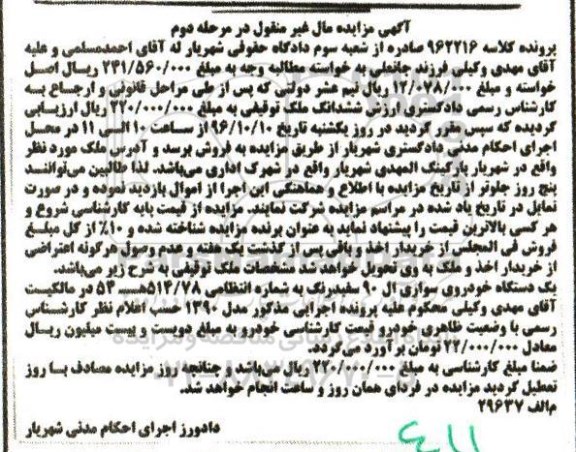 آگهی مزایده مال غیر منقول در مرحله دوم
پرونده کلاسه ۹۶۲۲۱۶ صادره از شعبه سوم دادگاه حقوقی شهریار له آقای احمدمسلمی و علیه
آقای مهدی وکیلی فرزند جانعلی به خواسته مطالبه وجه به مبلغ ۲۴۱/۵۶۰/۰۰۰ ریـال اصـل
خواسته و مبلغ ۱۲/۰۷۸/۰۰۰ ریال نیم عشر دولتی که پس از طی مراحل قانونی و ارجـاع بـه
کارشناس رسمی دادگستری ارزش ششدانگ ملک توقیفی به مبلغ ۲۲۰/۰۰۰/۰۰۰ ریال ارزیـابی
گردیده که سپس مقرر گردید در روز یکشنبه تاریخ ۹۶/۱۰/۱۰ از سـاعت ۱۰ الـی ۱۱ در محـل
اجرای احکام مدنی دادگستری شهریار از طریق مزایده به فروش برسد و آدرس ملک مورد نظر
واقع در شهریار پارکینگ المهدی شهریار واقع در شهرک اداری می‌باشد. لذا طالبین می‌تواننـد
پنج روز جلوتر از تاریخ مزایده با اطلاع و هماهنگی این اجرا از اموال بازدید نموده و در صورت
تمایل در تاریخ یاد شده در مراسم مزایده شرکت نمایند. مزایده از قیمت پایه کارشناسی شروع و
هر کسی بالاترین قیمت را پیشنهاد نماید به عنوان برنده مزایده شناخته شده و ۱۰٪ از کل مبلـغ
فروش فی المجلس از خریدار اخذ و باقی پس از گذشت یک هفته و عدم وصول هرگونه اعتراضی
از خریدار اخذ و ملک به وی تحویل خواهد شد مشخصات ملک توقیفی به شرح زیر می‌باشد.
یک دستگاه خودروی سواری ال ۹۰ سفیدرنگ به شماره انتظامی ۵۱۴/۷۸هـــ ۵۳ در مالکیـت
آقای مهدی وکیلی محکوم علیه پرونده اجرایی مذکور مدل ۱۳۹۰ حسب اعلام نظر کارشـناس
رسمی با وضعیت ظاهری خودرو قیمت کارشناسی خودرو به مبلغ دویست و بیست میلیون ریـال
معادل ۲۲/۰۰۰/۰۰۰ تومان برآورد می‌گردد.
ضمنا مبلغ کارشناسی به مبلغ ۲۲۰/۰۰۰/۰۰۰ ریال می‌باشد و چنانچه روز مزایده مصادف بـا روز
تعطیل گردید مزایده در فردای همان روز و ساعت انجام خواهد شد.
م‌الف ۲۹۶۳۷
دادورز اجرای احکام مدنی شهریار
۴۱۱